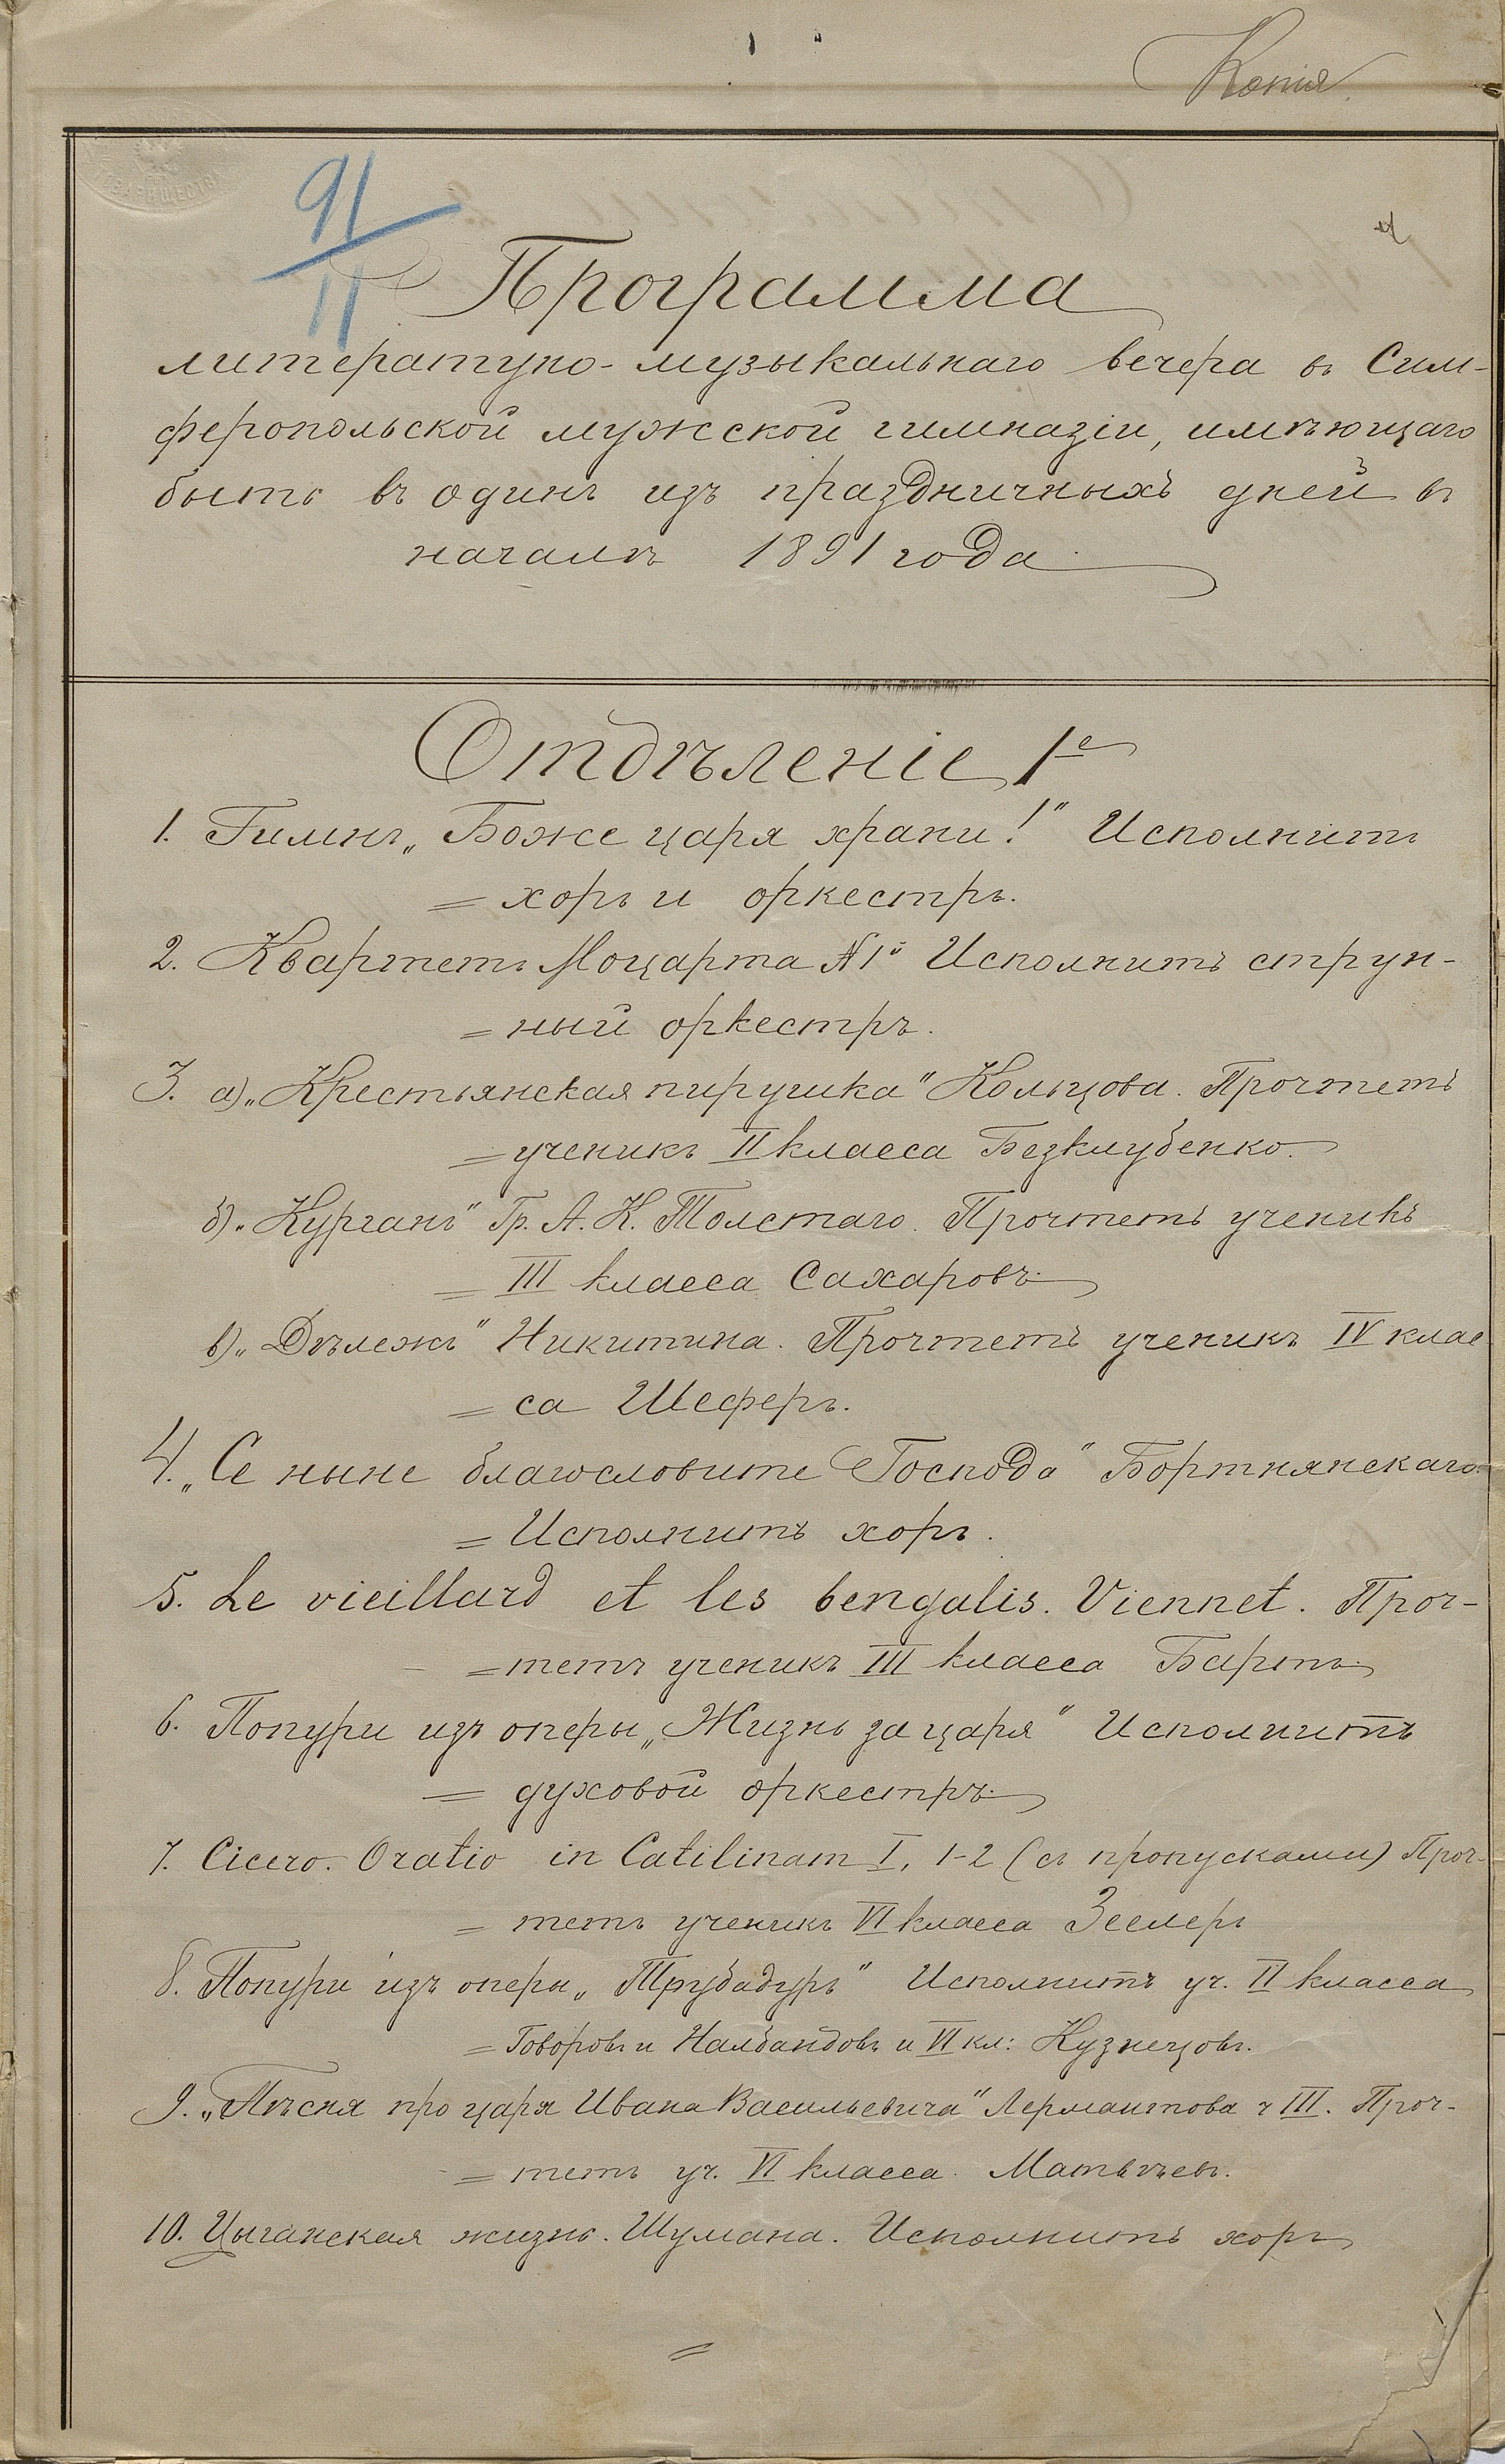 Копія.
91
11
Программа
литературно-музыкальнаго вечера въ Сим-
феропольской мужской гимназіи, имѣющаго
быть въ одинъ изъ праздничныхъ дней въ
началѣ 1891 года
Отдѣленіе 1е
1. Гимнъ „Боже царя храни!" Исполнитъ
= хоръ и оркестръ.
2. Квартетъ Моцарта №1й Исполнитъ струн-
= ный оркестръ.
3. а) „Крестьянская пирушка" Кольцова. Прочтетъ
= ученикъ II класса Безклубенко.
б) „Курганъ" Гр. А. К. Толстаго. Прочтетъ ученикъ
= III класса Сахаровъ.
в) „Дѣлежъ" Никитина. Прочтетъ ученикъ IV клас
= са Шеферъ.
4. „Се ныне благословите Господа" Бортнянскаго.
= Исполнитъ хоръ.
5. Le vieillard et les bengalis. Viennet. Проч-
= тетъ ученикъ III класса Бартъ.
6. Попури изъ оперы „Жизнь за царя" Исполнитъ
= духовой оркестръ.
7. Cicero. Oratio in Catilinam I, 1-2 (съ пропусками) Проч-
= тетъ ученикъ VI класса Зеелеръ
8. Попури изъ оперы „Трубадуръ" Исполнитъ уч. II класса
= Говоровъ и Налбандовъ и VI кл: Кузнецовъ.
9. „Пѣсня про царя Ивана Васильевича" Лермантова ч III. Проч-
= тетъ уч. VI класса. Матвѣевъ.
10. Цыганская жизнь. Шумана. Исполнитъ хоръ
=